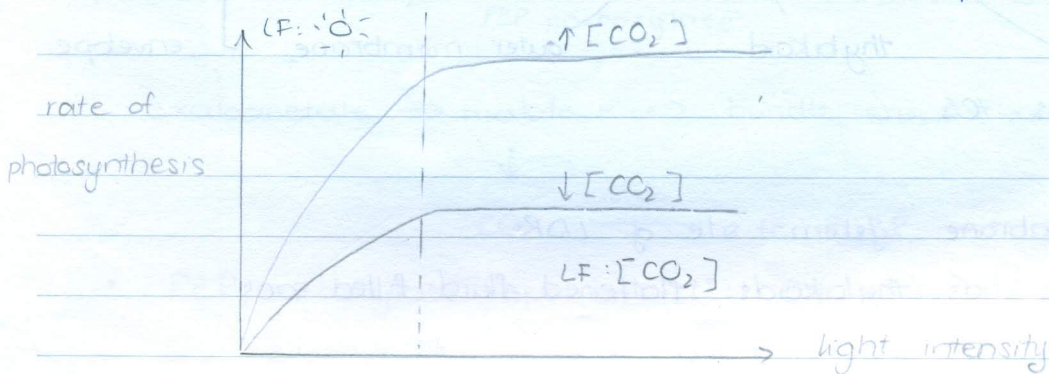 LF:
↑ [CO₂]
rate of
photosynthesis
↓ [CO₂]
LF : [CO₂]
light intensity